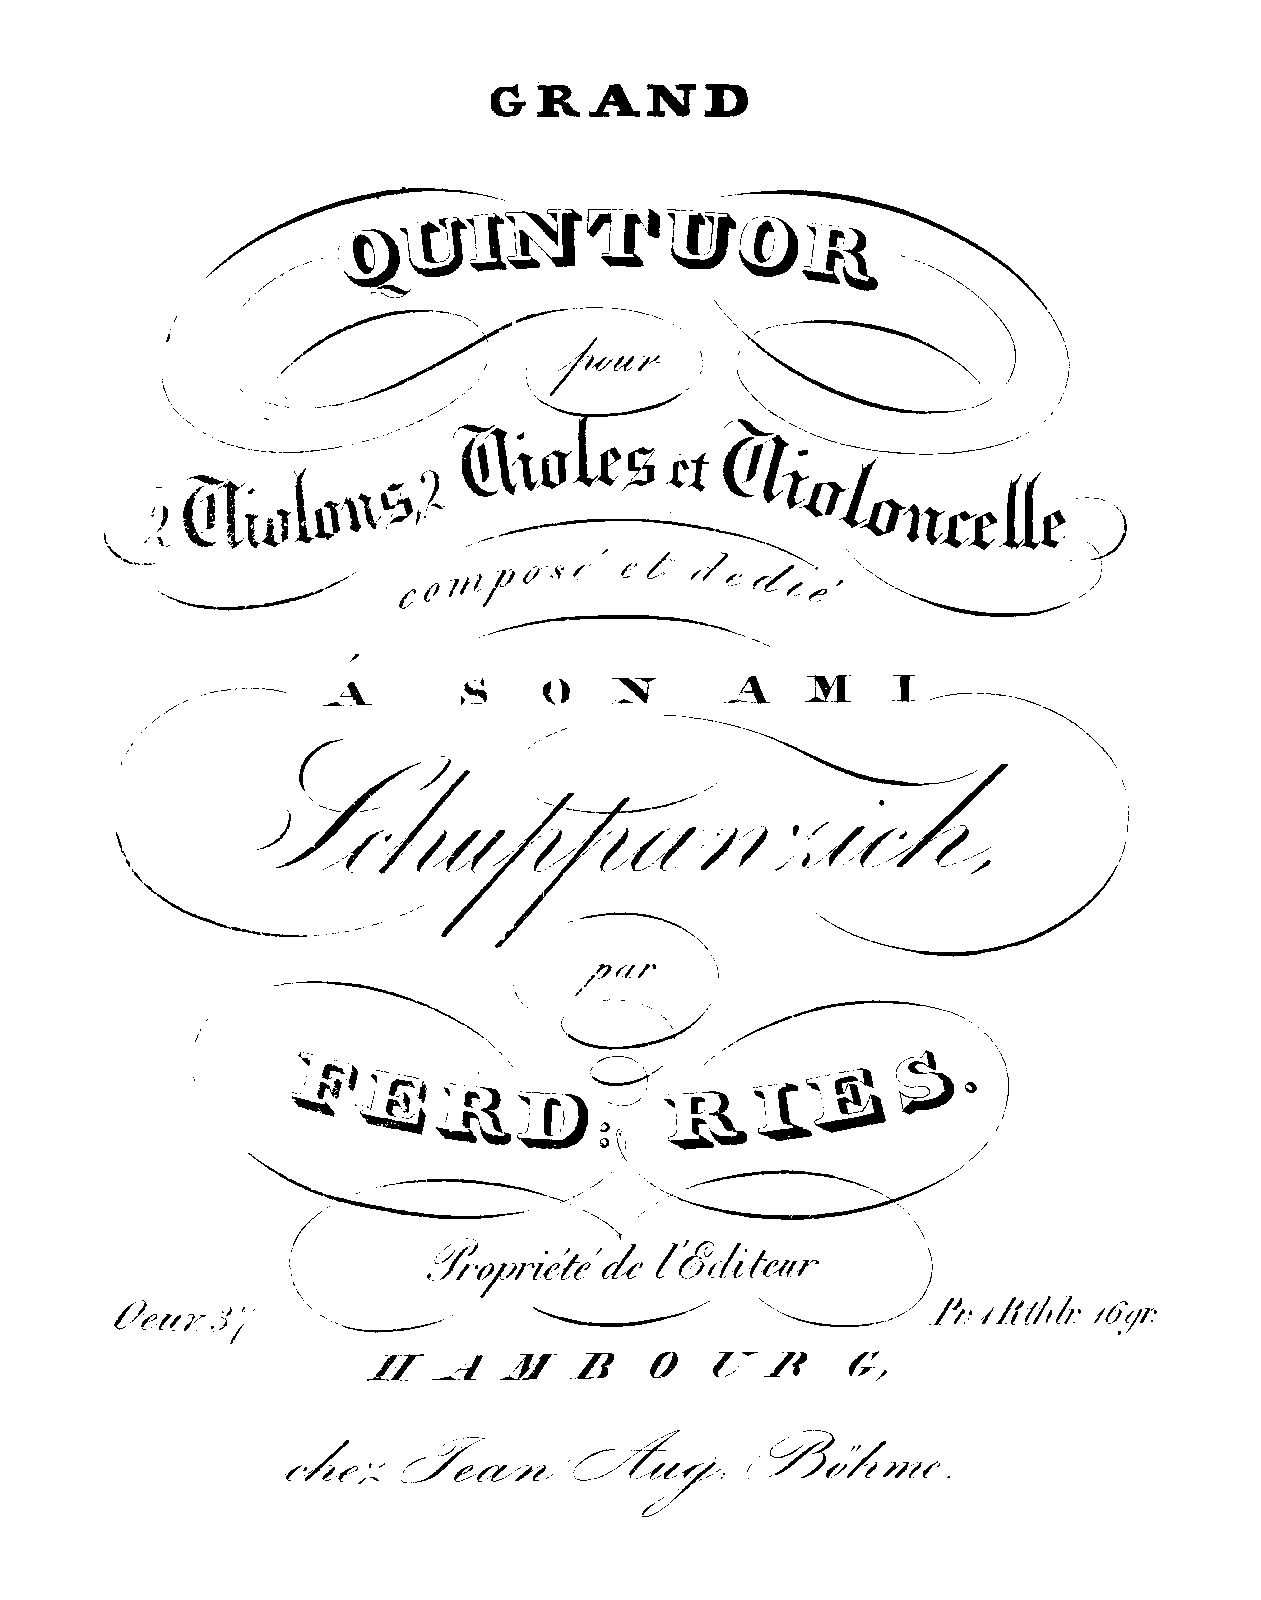 GRAND
QUINTUOR
pour
2 Violons, 2 Violes et Violoncelle
composé et dedié
Á SON AMI
Schuppanzich,
par
FERD: RIES.
Propriété de l'Editeur
Oeuv. 37 Pr. 1 Rthlr. 16 gr.
HAMBOURG,
chez Jean Aug. Böhme.